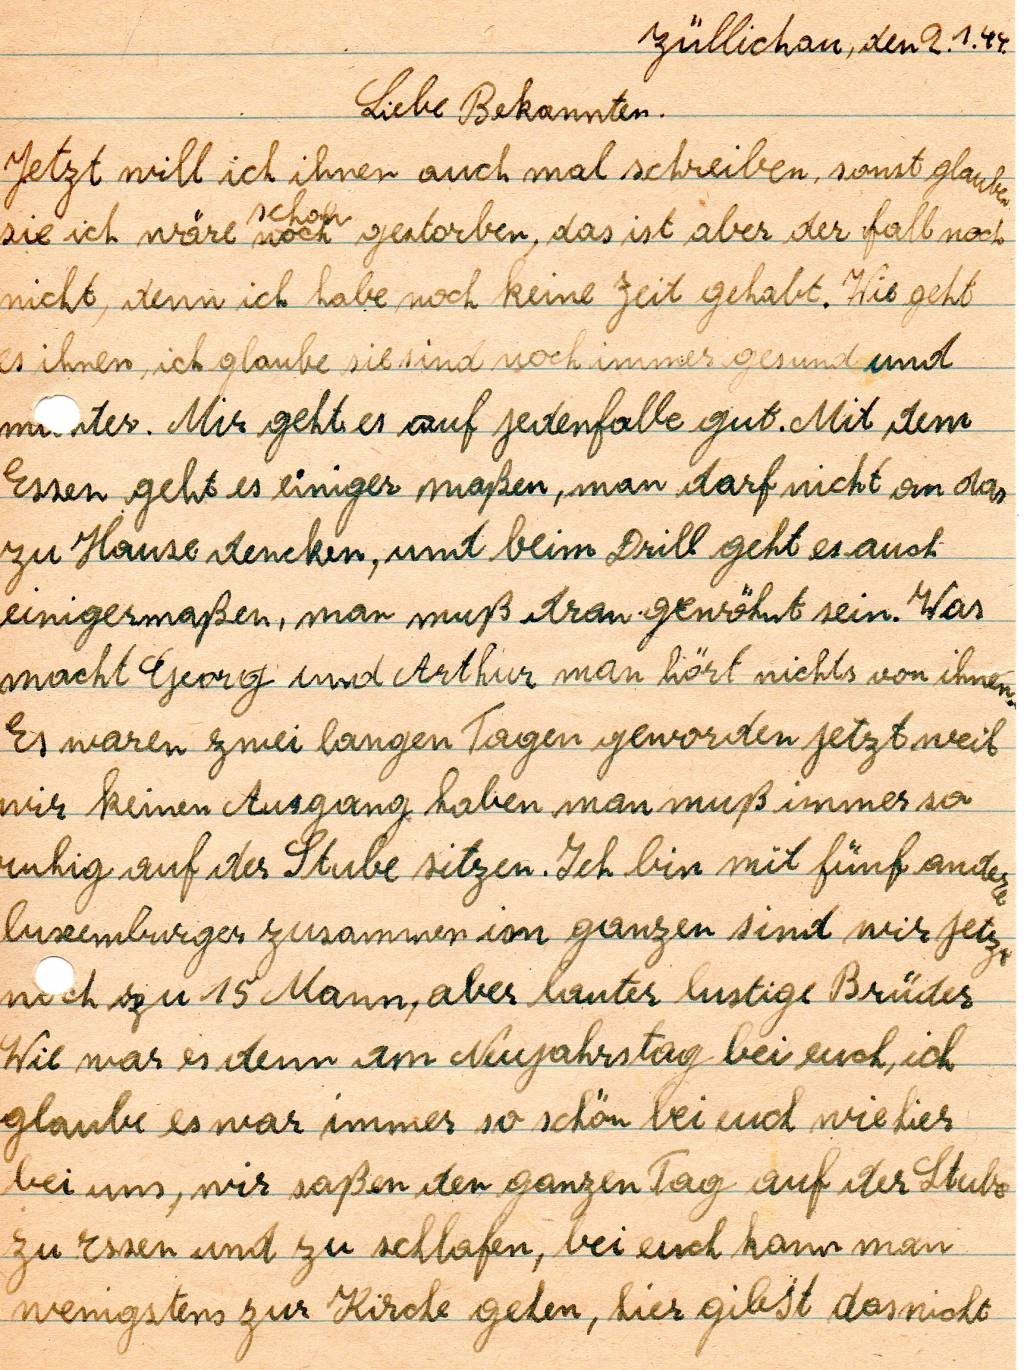 Züllichau, den 2.1.44.
Liebe Bekannten.
Jetzt will ich ihnen auch mal schreiben, sonst glauben
schon
sie ich wäre noch gestorben, das ist aber der fall noch
nicht, denn ich habe noch keine Zeit gehabt. Wie geht
es ihnen, ich glaube sie sind noch immer gesund und
munter. Mir geht es auf jedenfalle gut. Mit dem
Essen geht es einiger maßen, man darf nicht an das
zu Hause dencken, und beim Drill geht es auch
einigermaßen, man muß dran gewöhnt sein. Was
macht Georg und Arthur man hört nichts von ihnen.
Es waren zwei langen Tagen geworden jetzt weil
wir keinen Ausgang haben man muß immer so
ruhig auf der Stube sitzen. Ich bin mit fünf andere
luxemburger zusammen im ganzen sind wir jetzt
noch zu 15 Mann, aber lauter lustige Brüder
Wie war es denn am Neujahrstag bei euch, ich
glaube es war immer so schön bei euch wie hier
bei uns, wir saßen den ganzen Tag auf der Stube
zu Essen und zu schlafen, bei euch kann man
wenigstens zur Kirche gehen, hier gibst das nicht